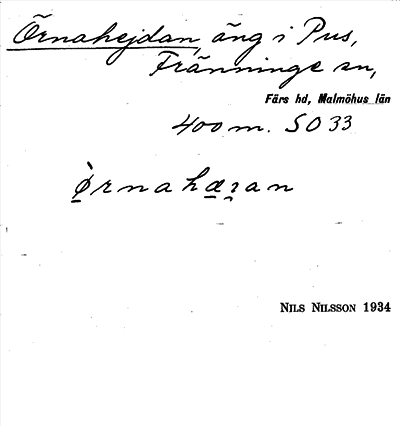 Örnahejdan, äng i Pus,
Fränninge sn,
Färs hd, Malmöhus län
400 m. SO 33
ø̱̀rnahæ̱ɿ̯an
NILS NILSSON 1934